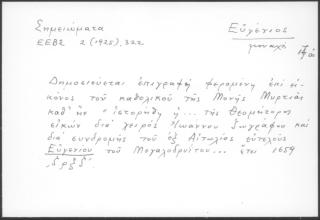 Σημειώματα
Εὐγένιος
ΕΕΒΣ 2 (1925), 322
μοναχὸς
Δημοσιεύεται ἐπιγραφὴ φερομένη ἐπὶ εἰ-
κόνος τοῦ καθολικοῦ τῆς Μονῆς Μυρτιᾶς
καθ' ἣν "ἱστορήθη ἡ ... τῆς Θεομήτορος
εἰκὼν διὰ χειρὸς Ἰωάννου ζωγράφου καὶ
διὰ συνδρομῆς τοῦ ἐξ Αἰτωλίας εὐτελοῦς
Εὐγενίου τοῦ Μεγαλοδρυΐτου... ἔτει 1659